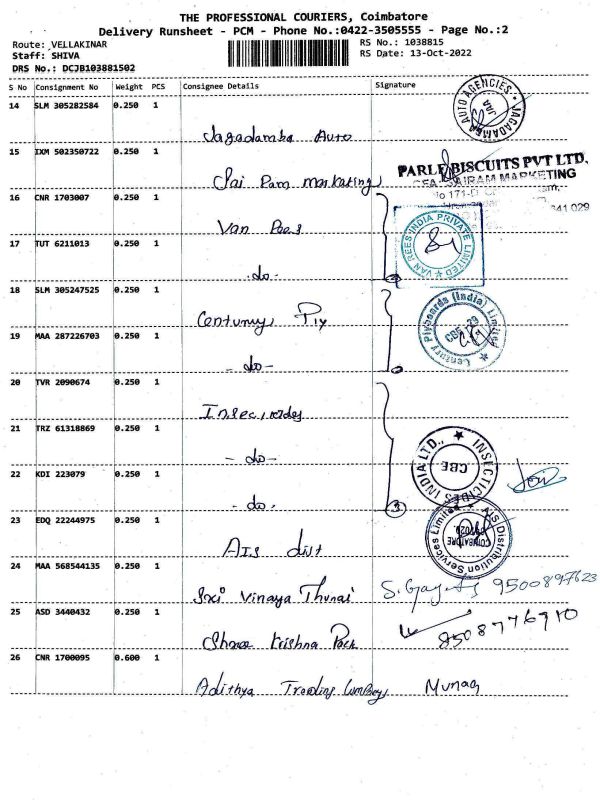 THE PROFESSIONAL COURIERS, Coimbatore
Delivery Runsheet - PCM - Phone No.:0422-3505555 - Page No.:2
Route: VELLAKINAR
RS No.: 1038815
Staff: SHIVA
RS Date: 13-Oct-2022
DRS No.: DCJB103881502
S No Consignment No Weight PCS Consignee Details Signature
14 SLM 305282584 0.250 1
JAGADAMBA AUTO AGENCIES
Jagadamba Auto
15 IXM 502350722 0.250 1
Sai Ram marketing
PARLE BISCUITS PVT LTD.
SAIRAM MARKETING
641 029
16 CNR 1703007 0.250 1
Van Rees
VAN REES INDIA PRIVATE LIMITED
17 TUT 6211013 0.250 1
-do-
18 SLM 305247525 0.250 1
Century Ply
Century Plyboards (India) Limited
CBE-29
19 MAA 287226703 0.250 1
-do-
20 TVR 2090674 0.250 1
21 TRZ 61318869 0.250 1
-do-
INSECTICIDES INDIA LTD.,
CBE
22 KDI 223079 0.250 1
-do-
3
23 EDQ 22244975 0.250 1
AIS dist
AIS Distribution Services Limited
COIMBATORE
24 MAA 568544135 0.250 1
Sri Vinaya Thunai
9500897623
25 ASD 3440432 0.250 1
Shree Krishna Pack
8508776910
26 CNR 1700095 0.600 1
Adithya Trading Company